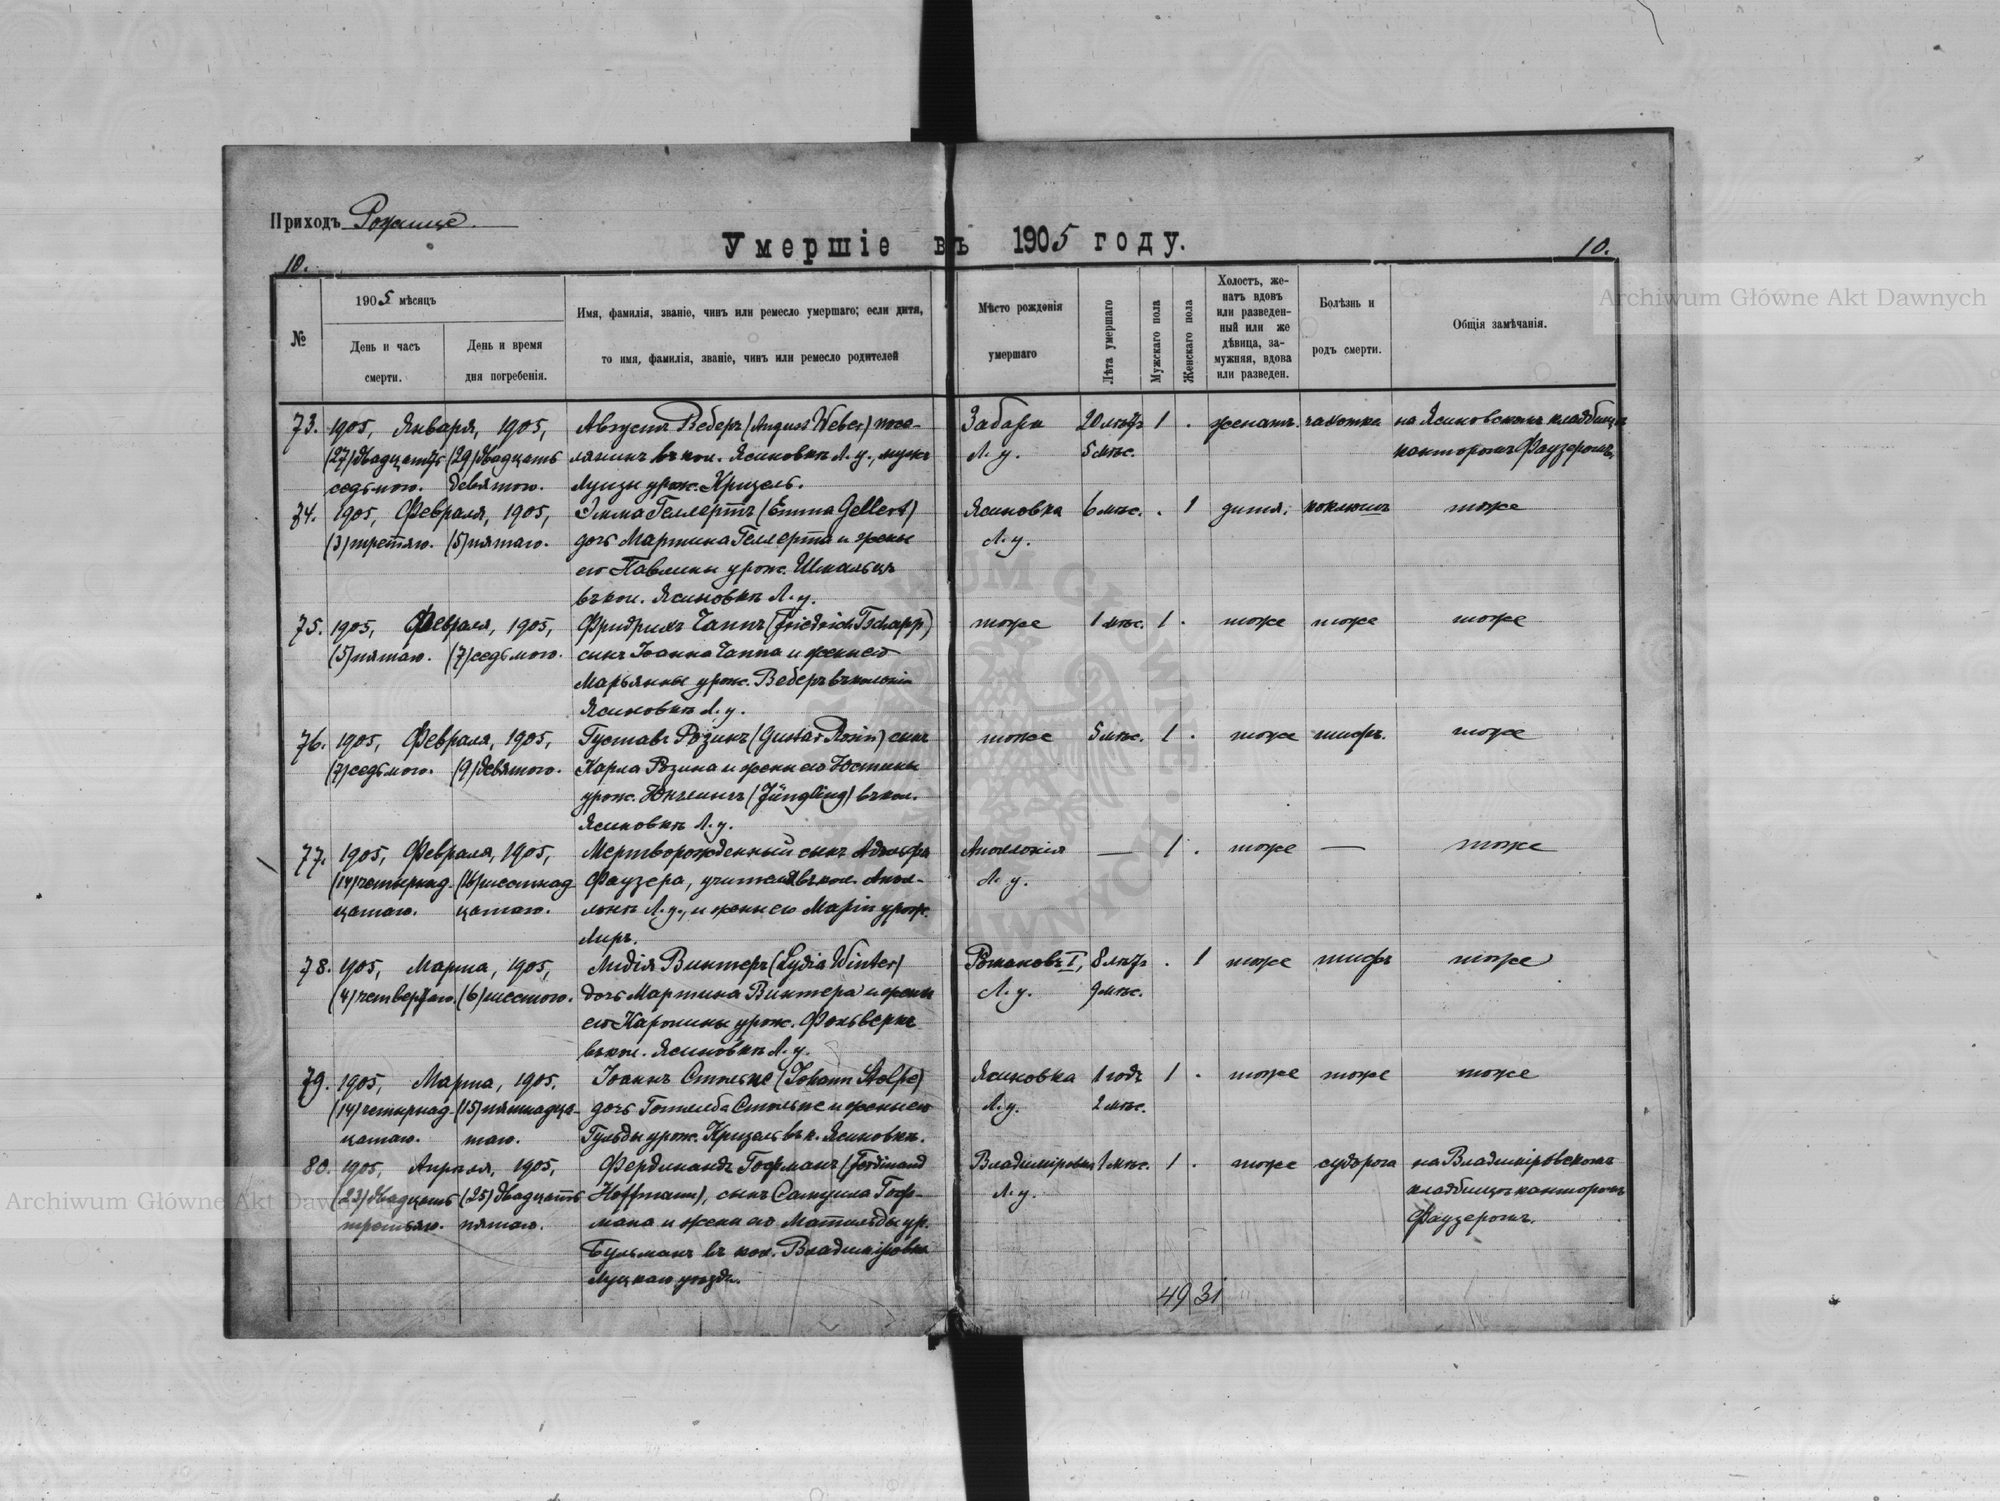 Приходъ Рожище.
Умершіе въ 1905 году.
10.
10.
Archiwum Główne Akt Dawnych
№
1905 мѣсяцъ
День и часъ смерти.
День и время дня погребенія.
Имя, фамилія, званіе, чинъ или ремесло умершаго; если дитя,
то имя, фамилія, званіе, чинъ или ремесло родителей
Мѣсто рожденія
умершаго
Лѣта умершаго
Мужскаго пола
Женскаго пола
Холостъ, же-
натъ вдовъ
или разведен-
ный или же
дѣвица, за-
мужняя, вдова
или разведен.
Болѣзнь и
родъ смерти.
Общія замѣчанія.
73. 1905, Января, 1905, Августъ Веберъ (August Weber) посе- Забара 20 лѣтъ 1 . женатъ. чахотка на Ясиновскомъ кладбищѣ
(27) двадцать (29) двадцать лянинъ въ кол. Ясиновкѣ Л. у., мужъ Л. у. 5 мѣс. канторомъ Фаузеромъ.
седьмого. девятого. Луизы урож. Кризель.
74. 1905, Февраля, 1905, Эмма Геллертъ (Emma Gellert) Ясиновка 6 мѣс. . 1 дитя. коклюшъ тоже
(3) третяго. (5) пятаго. дочь Мартина Геллерта и жены Л. у.
его Павлины урож.
въ кол. Ясиновкѣ Л. у.
75. 1905, Февраля, 1905, Фридрихъ Чаппъ (Friedrich Tschapp) тоже 1 мѣс. 1 . тоже тоже тоже
(5) пятаго. (7) седьмого. сынъ Іоанна Чаппа и жены его
Марьянны урож. Веберъ въ колоніи
Ясиновкѣ Л. у.
76. 1905, Февраля, 1905, Густавъ Розинъ (Gustav Rosin) сынъ тоже 5 мѣс. 1 . тоже тифъ. тоже
(7) седьмого. (9) девятого. Карла Розина и жены его Юстины
урож. Юнглингъ (Jüngling) въ кол.
Ясиновкѣ Л. у.
77. 1905, Февраля, 1905, Мертворожденный сынъ Адольфа Аполлонія — 1 . тоже — тоже
(14) четырнад- (16) шестнад- Фаузера, учителя въ кол. Апол- Л. у.
цатаго. цатаго. лоніи Л. у., и жены его Маріи урож.
Лиръ.
78. 1905, Марта, 1905, Лидія Винтеръ (Lydia Winter) Рожановъ I, 8 лѣтъ . 1 тоже тифъ тоже
(4) четвертаго. (6) шестого. дочь Мартина Винтера и жены Л. у. 9 мѣс.
его Каролины урож. Фольверкъ
въ кол. Ясиновкѣ Л. у.
79. 1905, Марта, 1905, Іоаннъ Стольпе (Johann Stolpe) Ясиновка 1 годъ 1 . тоже тоже тоже
(14) четырнад- (15) пятнадца- дочь Готлиба Стольпе и жены его Л. у. 2 мѣс.
цатаго. таго. Гульды урож. Кризель въ к. Ясиновкѣ.
80. 1905, Апрѣля, 1905, Фердинандъ Гофманъ (Ferdinand Владиміровка 1 мѣс. 1 . тоже судорога на Владиміровскомъ
(23) двадцать (25) двадцать Hoffmann), сынъ Самуила Гоф- Л. у. кладбищѣ канторомъ
третьяго. пятаго. мана и жены его Матильды ур. Фаузеромъ.
Бульманъ въ кол. Владиміровка
Луцкаго уѣзда.
49 31
Archiwum Główne Akt Dawnych